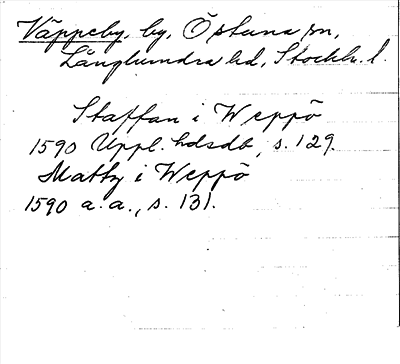 Väppeby, by, Östuna sn,
Långhundra hd, Stockh. l.
Staffan i Weppö
1590 Uppl. hdsdb, s. 129.
Matz i Weppö
1590 a. a., s. 131.